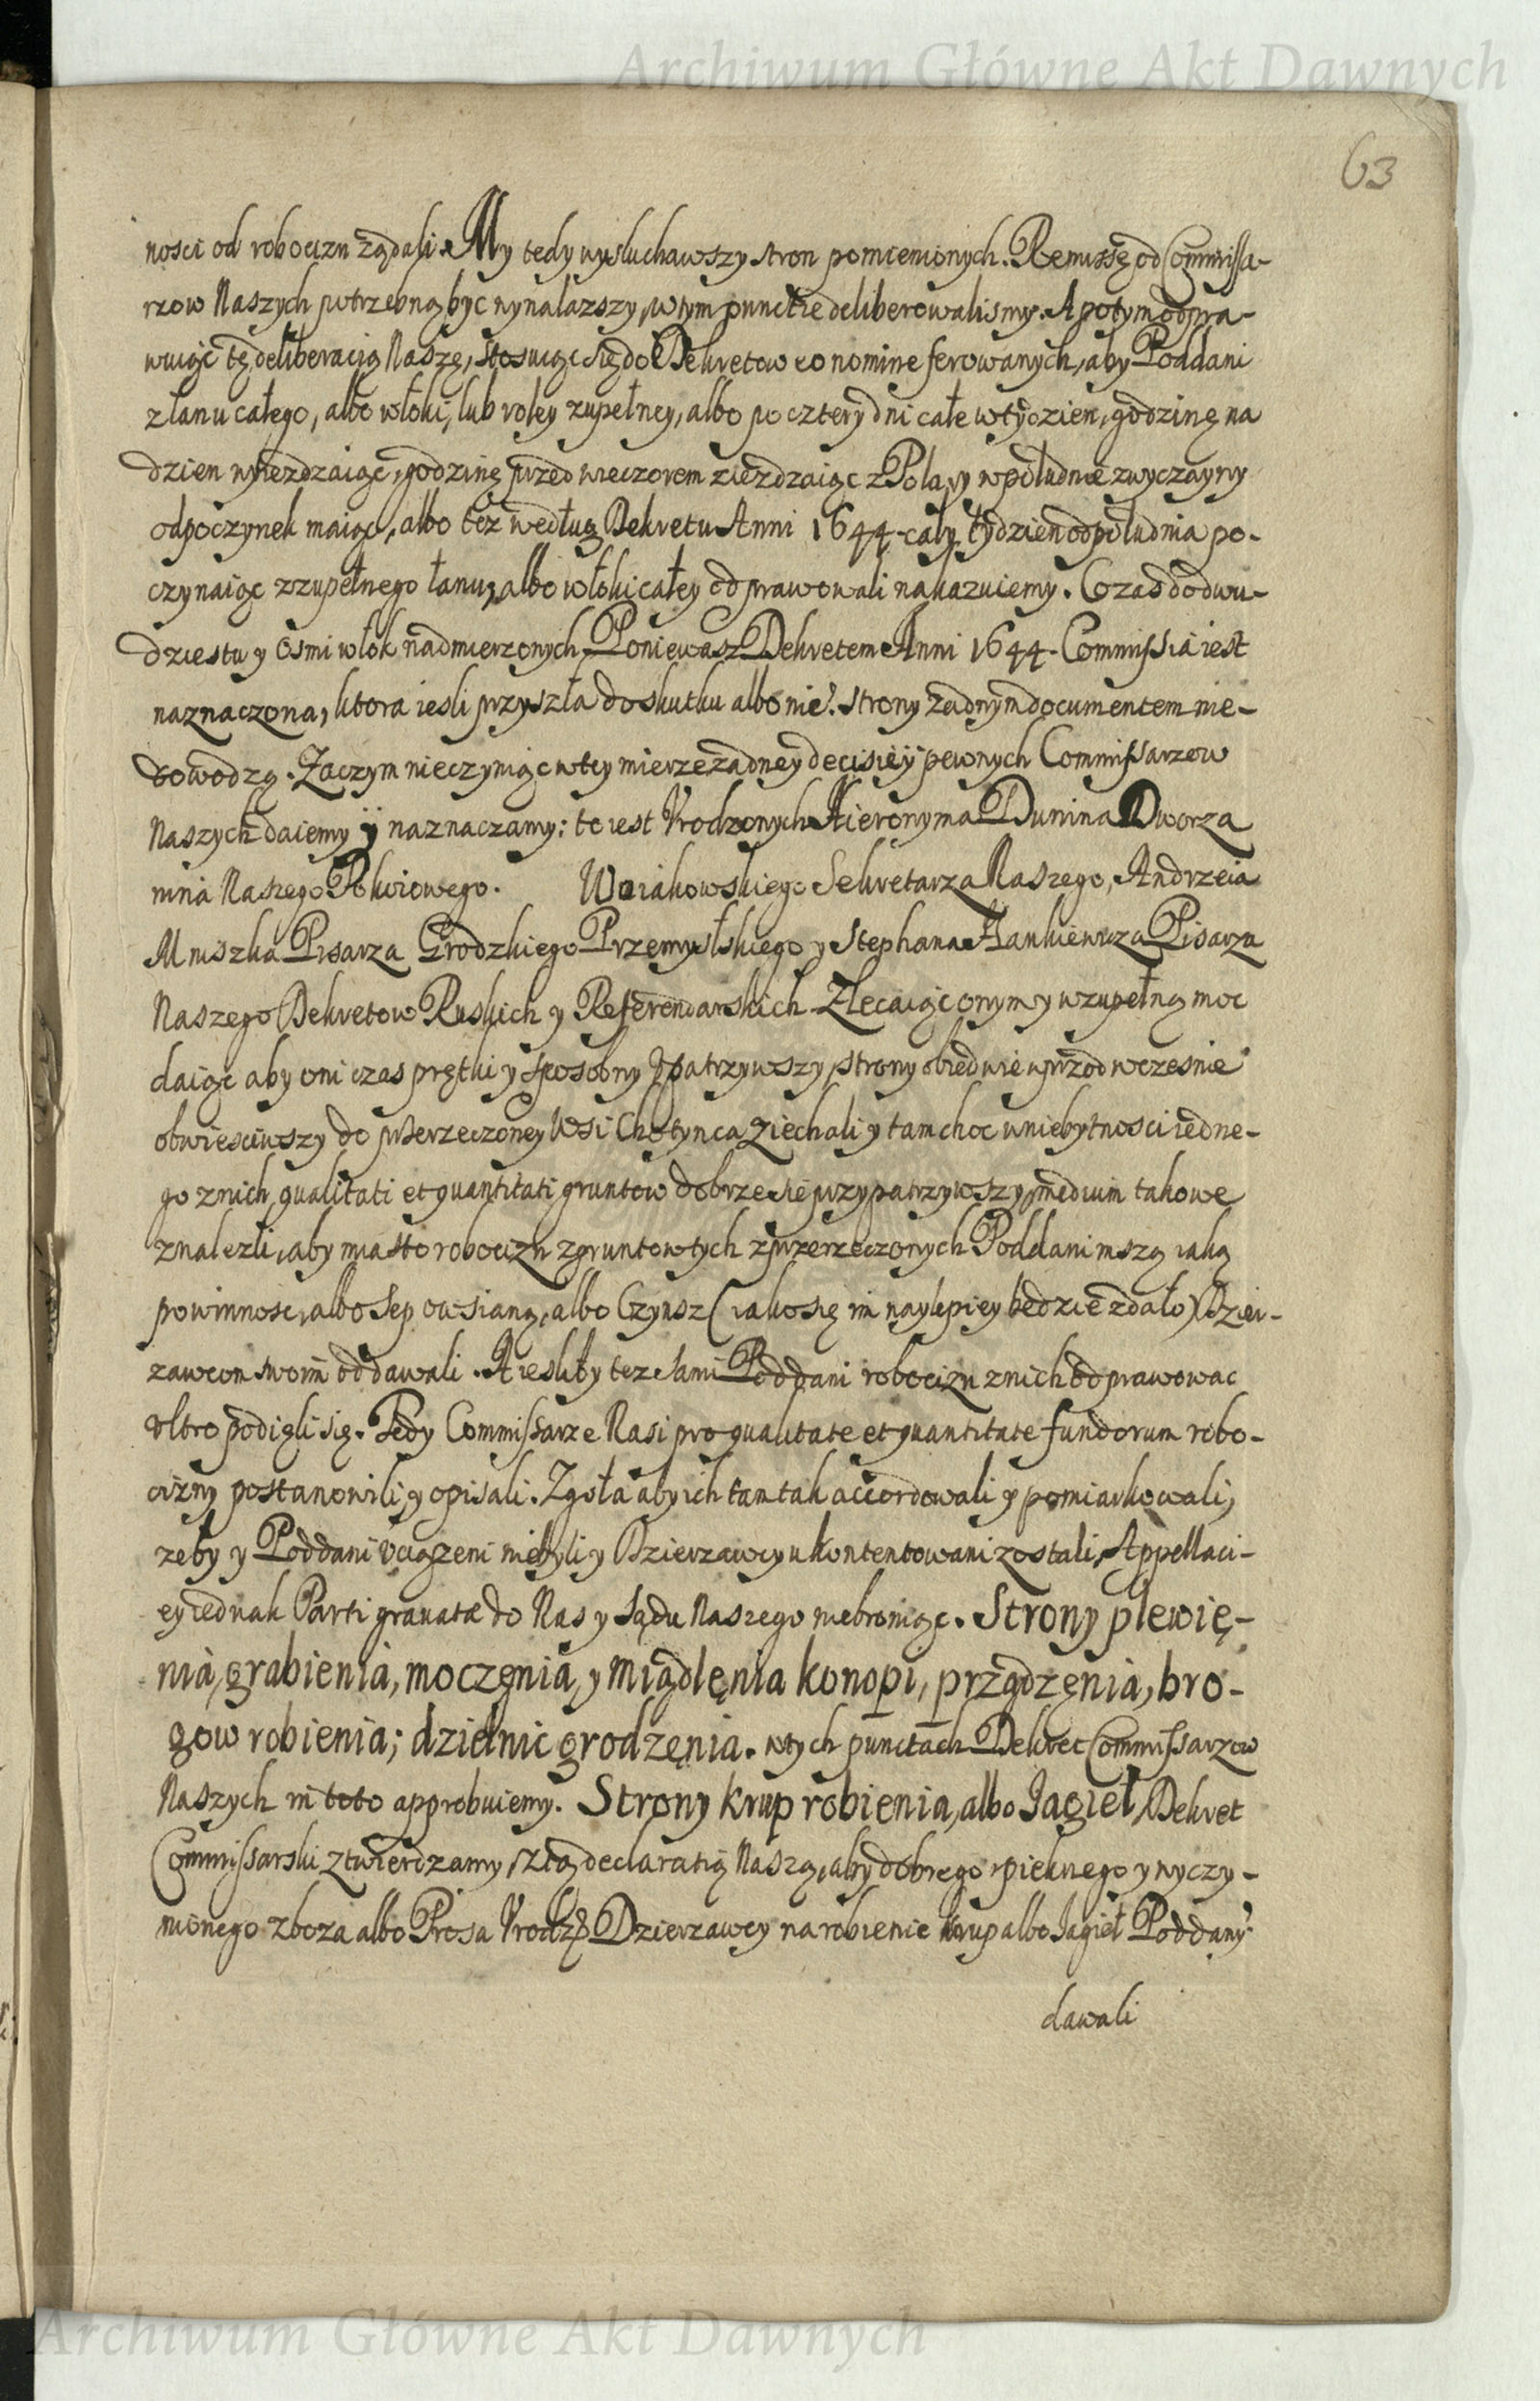 Archiwum Główne Akt Dawnych
63
nosci od robocizn ządali. My tedy wysłuchawszy stron pomienionych. Remissę od Commissa-
rzow Naszych potrzebną byc wynalazszy, w tym punctie deliberowalismy. A potym odpra-
wuiąc tę deliberacią Naszę, stosuiąc się do Dekretow eo nomine ferowanych, aby Poddani
z łanu całego, albo włoki, lub roley zupełney, albo po cztery dni całe w tydzien, godzinę na
dzien wyiezdzaiąc, godzinę przed wieczorem ziezdzaiąc z Pola, y w południe zwyczayny
odpoczynek maiąc, albo tez według Dekretu Anni 1644 cały tydzien od południa po-
czynaiąc z zupełnego łanu, albo włoki całey odprawowali nakazuiemy. Co zas do dwu-
dziestu y osmi włok nadmierzonych, Poniewasz Dekretem Anni 1644. Commissia iest
naznaczona, ktora iesli przyszła do skutku albo nie? strony zadnym documentem nie-
dowodzą. Zaczym nieczyniąc w tey mierze zadney decisiey pewnych Commissarzow
Naszych daiemy y naznaczamy: to iest Vrodzonych Hieronyma Dunina Dworza
nina Naszego Pokoiowego. Woiakowskiego Sekretarza Naszego, Andrzeia
Mniszka Pisarza Grodzkiego Przemyślskiego y Stephana Hankiewicza Pisarza
Naszego Dekretow Ruskich y Referendarskich. Zlecaiąc onym y w zupełną moc
daiąc aby oni czas prętki y sposobny Vpatrzywszy, strony obiedwie wprzod wczesnie
obwiesciwszy do przerzeczoney Wsi Chotynca ziechali y tam choc w niebytnosci iedne-
go z nich, qualitati et quantitati gruntow dobrze się przypatrzywszy, medium takowe
znalezli, aby miasto robocizn z gruntow tych z przerzeczonych Poddani inszą iaką
powinnosc, albo sep owsianą, albo Czynsz (iako się im naylepiey będzie zdało) Dzier-
zawcom swoim oddawali. A iesliby tez sami Poddani robocizn z nich odprawowac
Vltro podięli się. Tedy Commissarze Nasi pro qualitate et quantitate fundorum robo-
cizny postanowili, y opisali. Zgoła aby ich tam tak accordowali y pomiarkowali,
zeby y Poddani vciązeni niebyli y Dzierzawcy ukontentowani zostali, Appellaci-
ey iednak Parti gravatæ do Nas y Sądu Naszego niebroniąc. Strony plewię-
nia, grabienia, moczęnia, y miądlęnia konopi, prządzęnia, bro-
gow robienia; dzielnic grodzęnia. w tych punctach Dekret Commissarzow
Naszych in toto approbuiemy. Strony krup robienia, albo Jagieł Dekret
Commissarski ztwierdzamy, z tą declaratią Naszą, aby dobrego, pieknego y wyczy-
nionego zboza albo Prosa Vrodz. Dzierzawcy na robienie krup albo Jagieł Poddany
dawali
Archiwum Główne Akt Dawnych